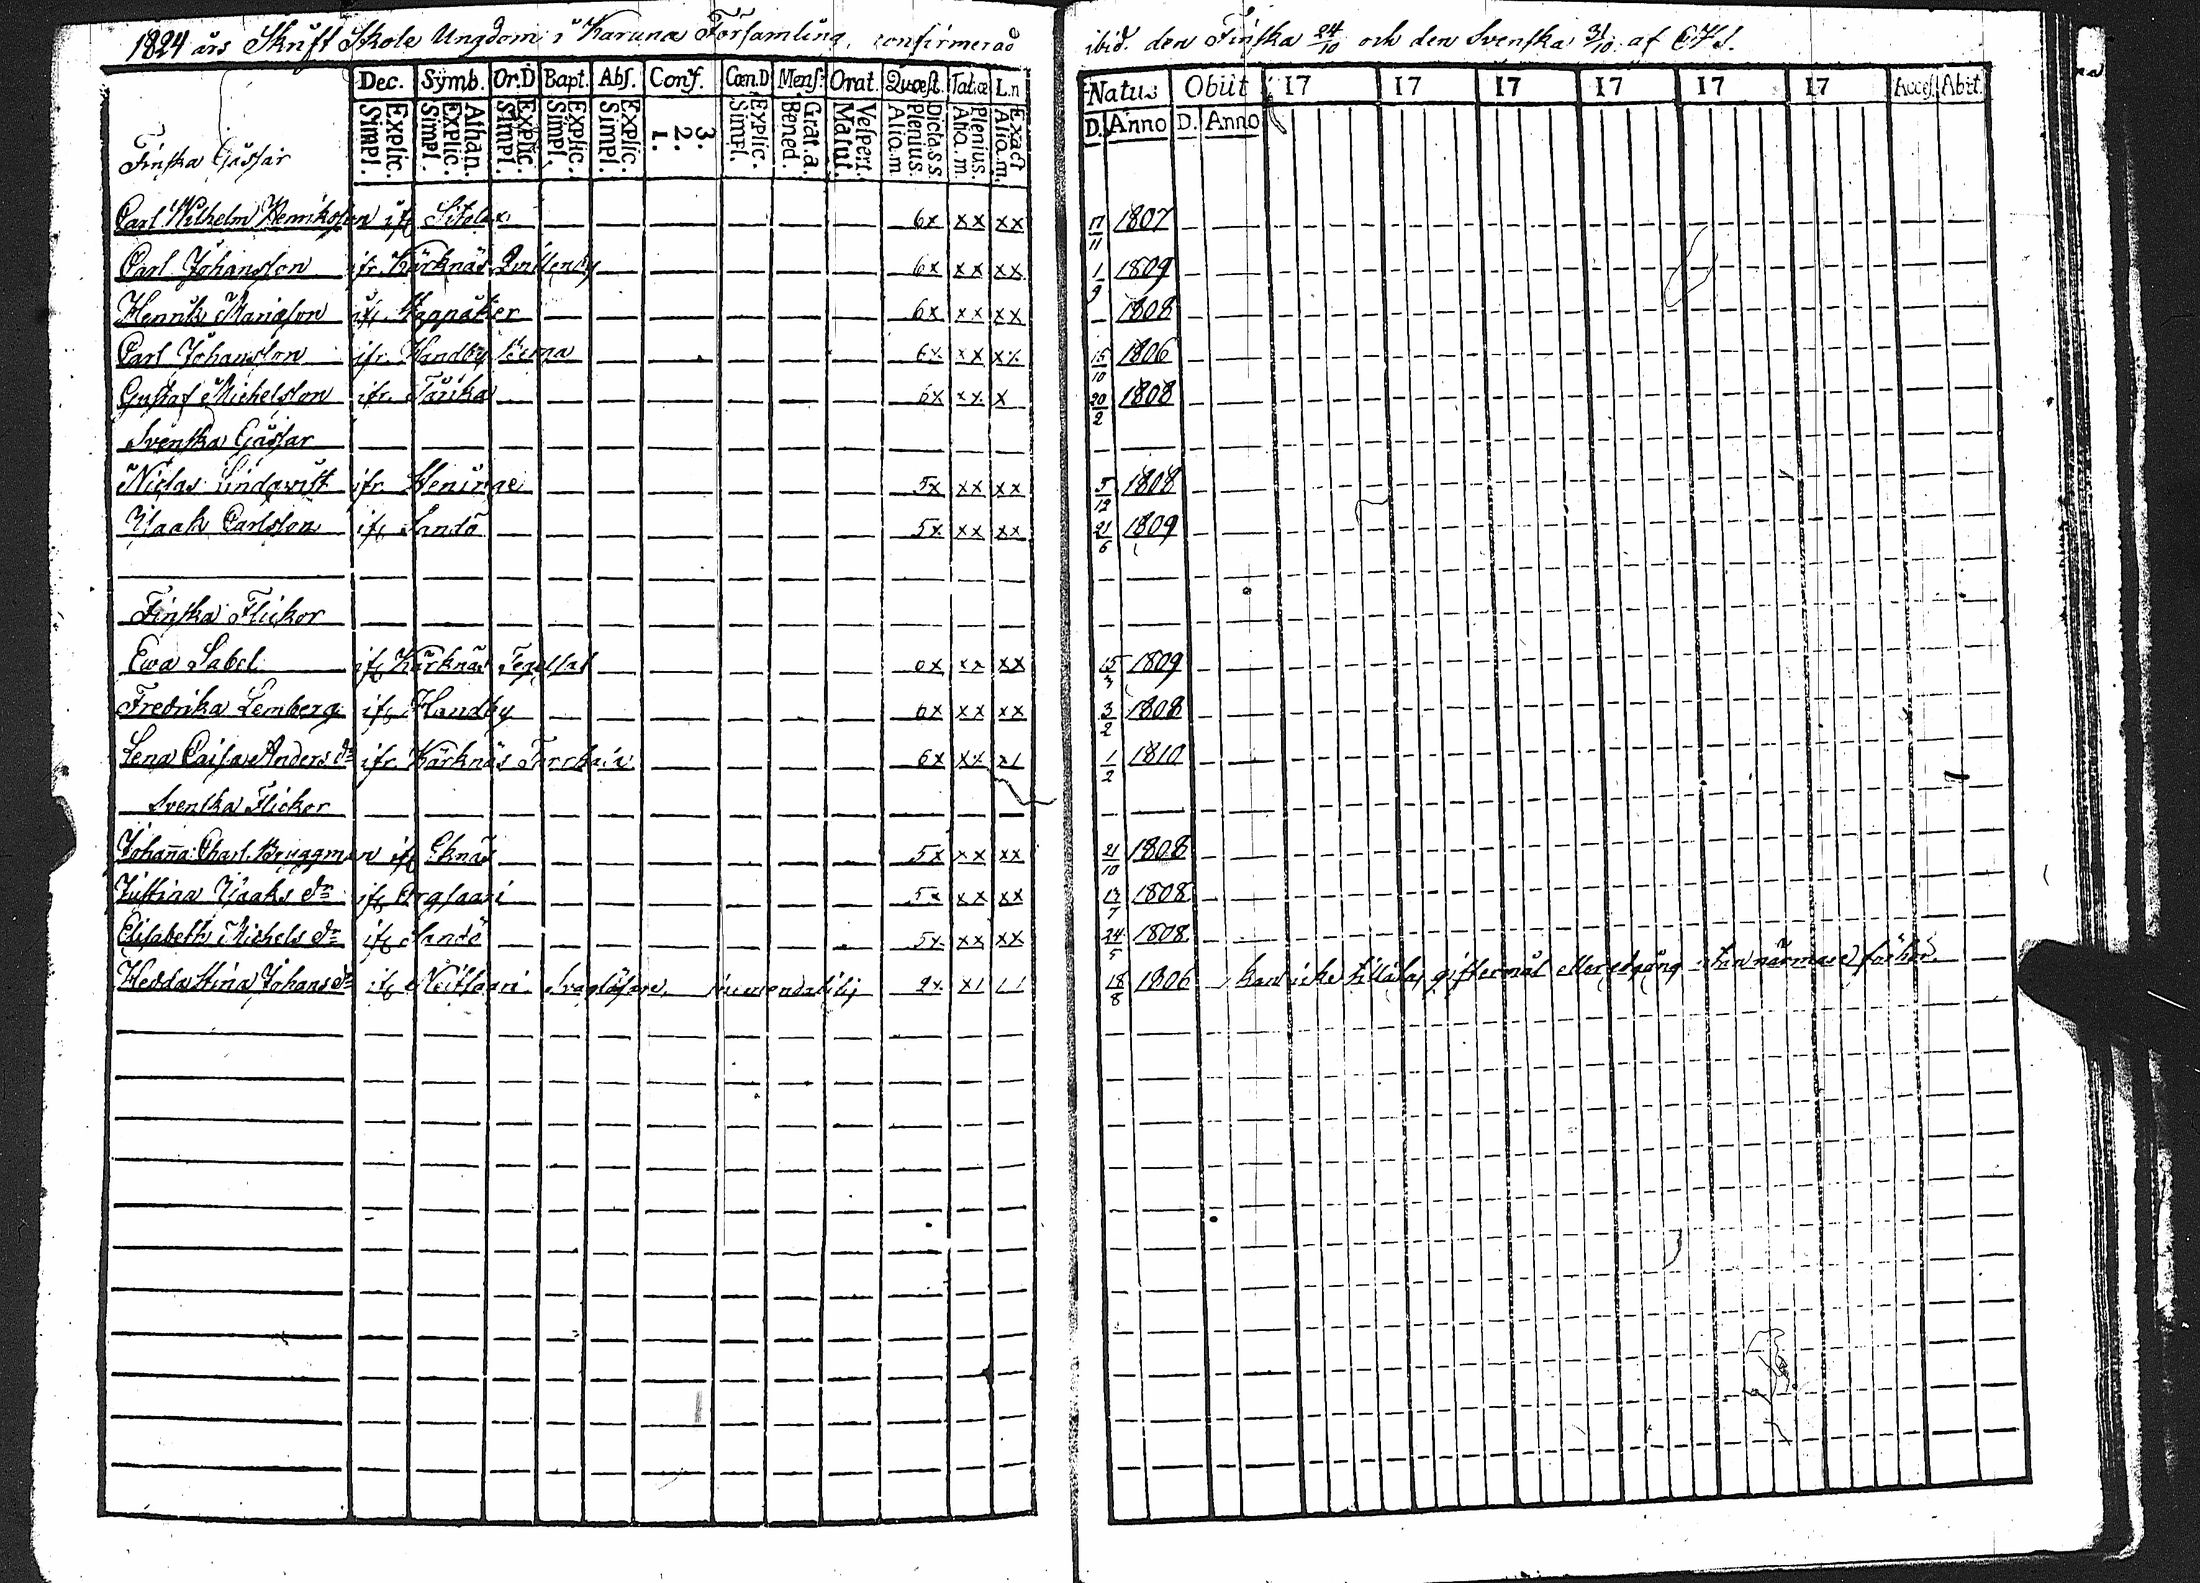 1824 års Skrift Skole Ungdom i Karuna Församling, confirmerad ibid. den Finska 24/10 och den Svenska 31/10 af
Dec. Symb. Or.D Bapt. Abs. Conf. Cœn.D Mens. Orat. Quæst. Tab.œ L.n Natus Obiit 17 17 17 17 17 17 Acces. Abit.
Simpl. Explic. Simpl. Explic. Athan. Simpl. Explic. Simpl. Explic. Simpl. Explic. 1. 2. 3. Simpl. Explic. Bened. Grat.a. Matut. Vespert. Alio.m Plenius. Dictas s Alia.m. Plenius. Alia.m. Exact D. Anno D. Anno
Finska Gåssar
Carl Wilhelm Henriksson ifr 6x xx xx 17/11 1807
Carl Johansson ifr. Kärknäs 6x xx xx 1/9 1809
Henrik ifr. 6x xx xx 1808
Carl Johansson ifr. Handby 6x xx xx 15/10 1806
Gustaf Michelsson ifr. 6x xx x 20/2 1808
Svenska Gåssar
Niclas Lindqwist ifr. 5x xx xx 5/12 1808
Isaak Carlsson ifr Sandö 5x xx xx 21/6 1809
Finska Flickor
Ewa Sabel ifr Kärknäs Tegelsal 6x xx xx 15/3 1809
Fredrika Lemberg ifr Handby 6x xx xx 3/2 1808
Lena Caisa Anders dr ifr. Kärknäs 6x xx x1 1/2 1810
Svenska Flickor
Johanna Charl. Bruggman ifr Eknäs 5x xx xx 21/10 1808
Justina Isaks dr ifr 5x xx xx 1808
Elisabeth Michels dr ifr Sandö 5x xx xx 24/5 1808
Hedda Stina Johans dr ifr 2x x1 11 18/8 1806 kan icke tillåtas giftermål eller edgång utan närmare förhör.